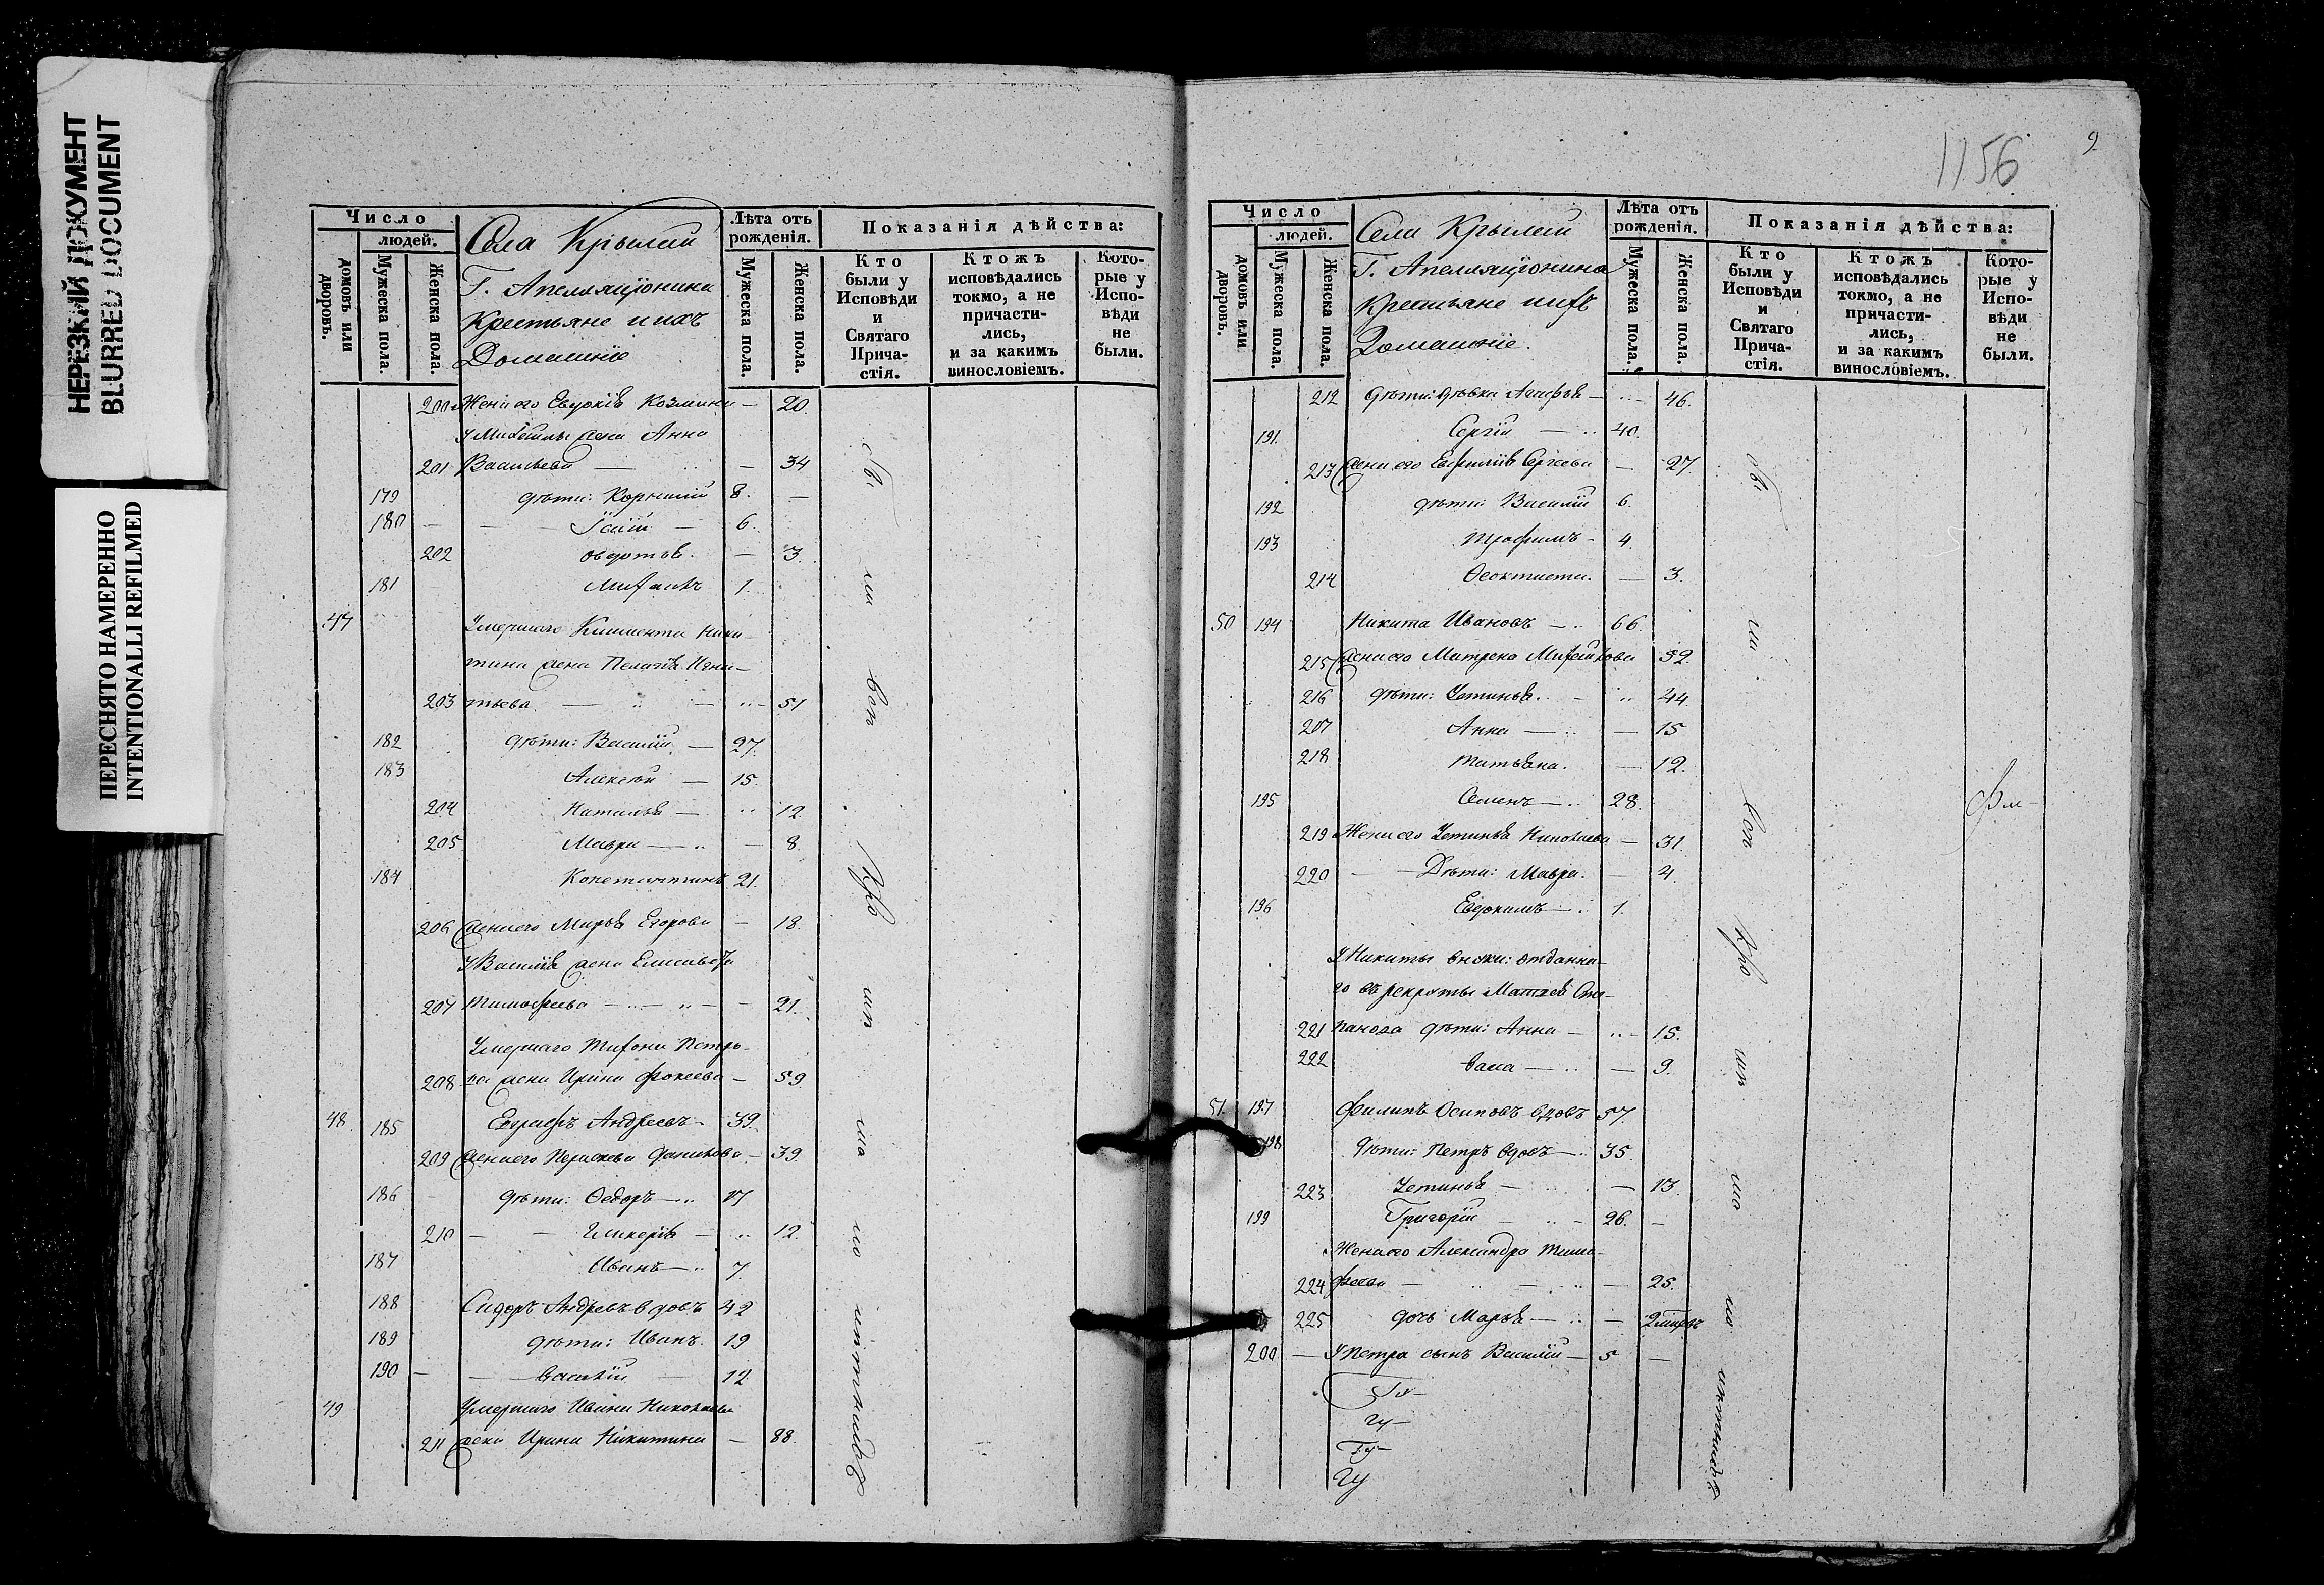 НЕРЕЗКИЙ ДОКУМЕНТ
BLURRED DOCUMENT
ПЕРЕСНЯТО НАМЕРЕННО
INTENTIONALLI REFILMED
Число
людей.
домовъ или дворовъ.
Мужеска пола.
Женска пола.
Села Крылей
Г. Апелляціонина
Крестьяне и ихъ
Домашніе
Лѣта отъ рожденія.
Мужеска пола.
Женска пола.
Показанія дѣйства:
Кто были у Исповѣди и Святаго Прича- стія.
Ктожъ исповѣдались токмо, а не причасти- лись, и за какимъ винословіемъ.
Кото- рые у Испо- вѣди не были.
200 Жена его Евдокія Козмина — 20.
У жена Анна
201 Васильева — — 34
179 дѣти: Корнилій 8. —
180 — — — 6.
202 овдотья. — 3.
181 Михаилъ 1.
47 Умершаго Климента Ники-
тина жена Пелагѣя Игна-
203 тьева — — 51
182 дѣти: Василій — 27.
183 Алексѣй — 15.
204 Наталья — 12
205 Мавра — — 8.
184 Констинтинъ 21.
206 жена его Марья Егорова — 18.
У Василія жена Елисавета
207 Тимофеева — — 21.
Умершаго Тихона Петро-
208 ва жена Ирина Фокеева — 59.
48. 185 Евграфъ Андреевъ — 39.
209 жена его Парасковья Данилова — 39.
186 дѣти: Ѳедоръ — 17
210 — — Гликерія — 12.
187 Иванъ — 7.
188 Сидоръ Андреевъ вдовъ 42
189 дѣти: Иванъ. 19
190 — — Василій — 12
49 Умершаго Ивана Николаева
211 жена Ирина Никитина — 88.
1156
9.
Число
людей.
домовъ или дворовъ.
Мужеска пола.
Женска пола.
Села Крылей
Г. Апелляціонина
Крестьяне ихъ
Домашніе.
Лѣта отъ рожденія.
Мужеска пола.
Женска пола.
Показанія дѣйства:
Кто были у Исповѣди и Святаго Прича- стія.
Ктожъ исповѣдались токмо, а не причасти- лись, и за какимъ винословіемъ.
Кото- рые у Испо- вѣди не были.
212 дѣти: дѣвка Агафья — 46.
191. Сергій — 40.
213 жена его Сергеева — 27
192 дѣти: Василій 6.
193 Трофимъ — 4.
214 Ѳеоктиста. — 3.
50 194 Никита Ивановъ — 66.
215 жена его Матрена Михайлова 52.
216 дѣти: Устинья. — 44.
207 Анна — — 15
218 Татьяна. — 12.
195 Семенъ — 28.
219 Жена его Устинья Николаева — 31.
220 — Дѣти: Мавра. — 4.
196 Евдокимъ — 1.
У Никиты внуки: отданна-
го въ рекруты Матвея Сте-
221 панова дѣти: Анна — 15.
222 васа — — 9.
51. 197 Филипъ Осиповъ вдовъ 57.
198 дѣти: Петръ вдовъ — 35.
223 Устинья — — 13.
199 Григорій — 26. —
Жена его Александра Тимо-
224 феева — — — 25.
225 дочь Марья — — 2
200 — У Петра сынъ Василій — 5 —